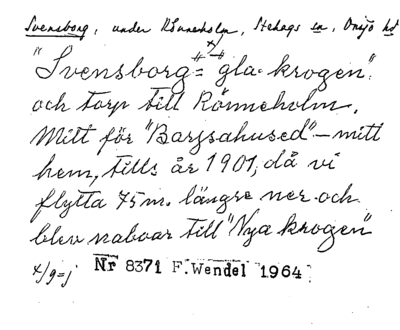 Svensborg, under Rönneholm, Stehags sn, Onsjö hd
x/
"Svensborg" = "gla krogen".
och torp till Rönneholm.
Mitt för "Barfsahused" – mitt
hem, tills år 1901, då vi
flytta 75 m. längre ner och
blev naboar till "Nya krogen"
x/g=j
Nr 8371 F. Wendel 1964.